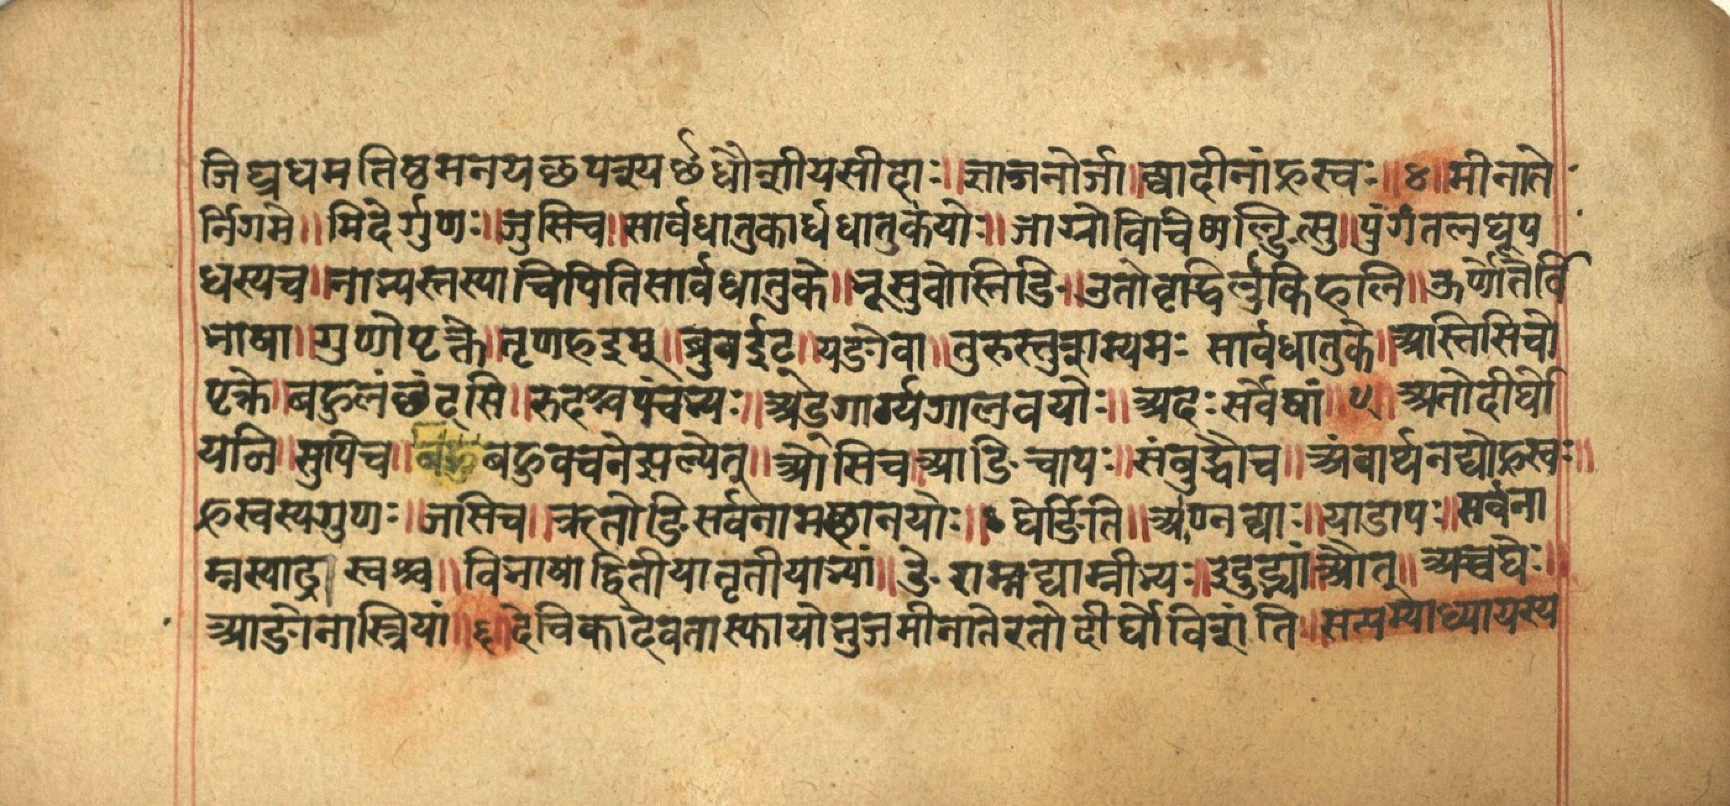 जिघ्रधमतिष्ठमनयच्छपश्यर्छधौशीयसीदाः॥ज्ञाजनोर्जा॥प्वादीनांह्रस्वः॥४॥मीनाते
र्निगमे॥मिदेर्गुणः॥जुसिच॥सार्वधातुकार्धधातुकयोः॥जाग्रोविचिण्णल्ङित्सु॥पुगंतलघूप
धस्यच॥नाभ्यस्तस्याचिपितिसार्वधातुके॥भूसुवोस्तिङि॥उतोवृद्धिर्लुकिहलि॥ऊर्णोतेर्वि
भाषा॥गुणोपृक्ते॥तृणहइम्॥ब्रुवईट्॥यङोवा॥तुरुस्तुशम्यमः सार्वधातुके॥अस्तिसिचो
पृक्ते॥बहुलंछंदसि॥रुदश्चपंचभ्यः॥अड्गार्ग्यगालवयोः॥अदःसर्वेषां॥५ अतोदीर्घो
यञि॥सुपिच॥बहु बहुवचनेझल्येत्॥ओसिच॥आङिचापः॥संबुद्धौच॥अंबार्थनद्योर्ह्रस्वः॥
ह्रस्वस्यगुणः॥जसिच॥ऋतोङिसर्वनामस्थानयोः॥घेर्ङिति॥आण्नद्याः॥याडापः॥सर्वना
म्नस्याड्ढ्रस्वश्च॥विभाषाद्वितीयातृतीयाभ्यां॥ङेराम्नद्याम्नीभ्यः॥इदुद्भ्यां॥औत्॥अच्चघेः॥
आङोनास्त्रियां॥६॥देविकादेवतास्फायोभुजमीनातेरतोदीर्घोविंशति॥सप्तम्याध्यायस्य